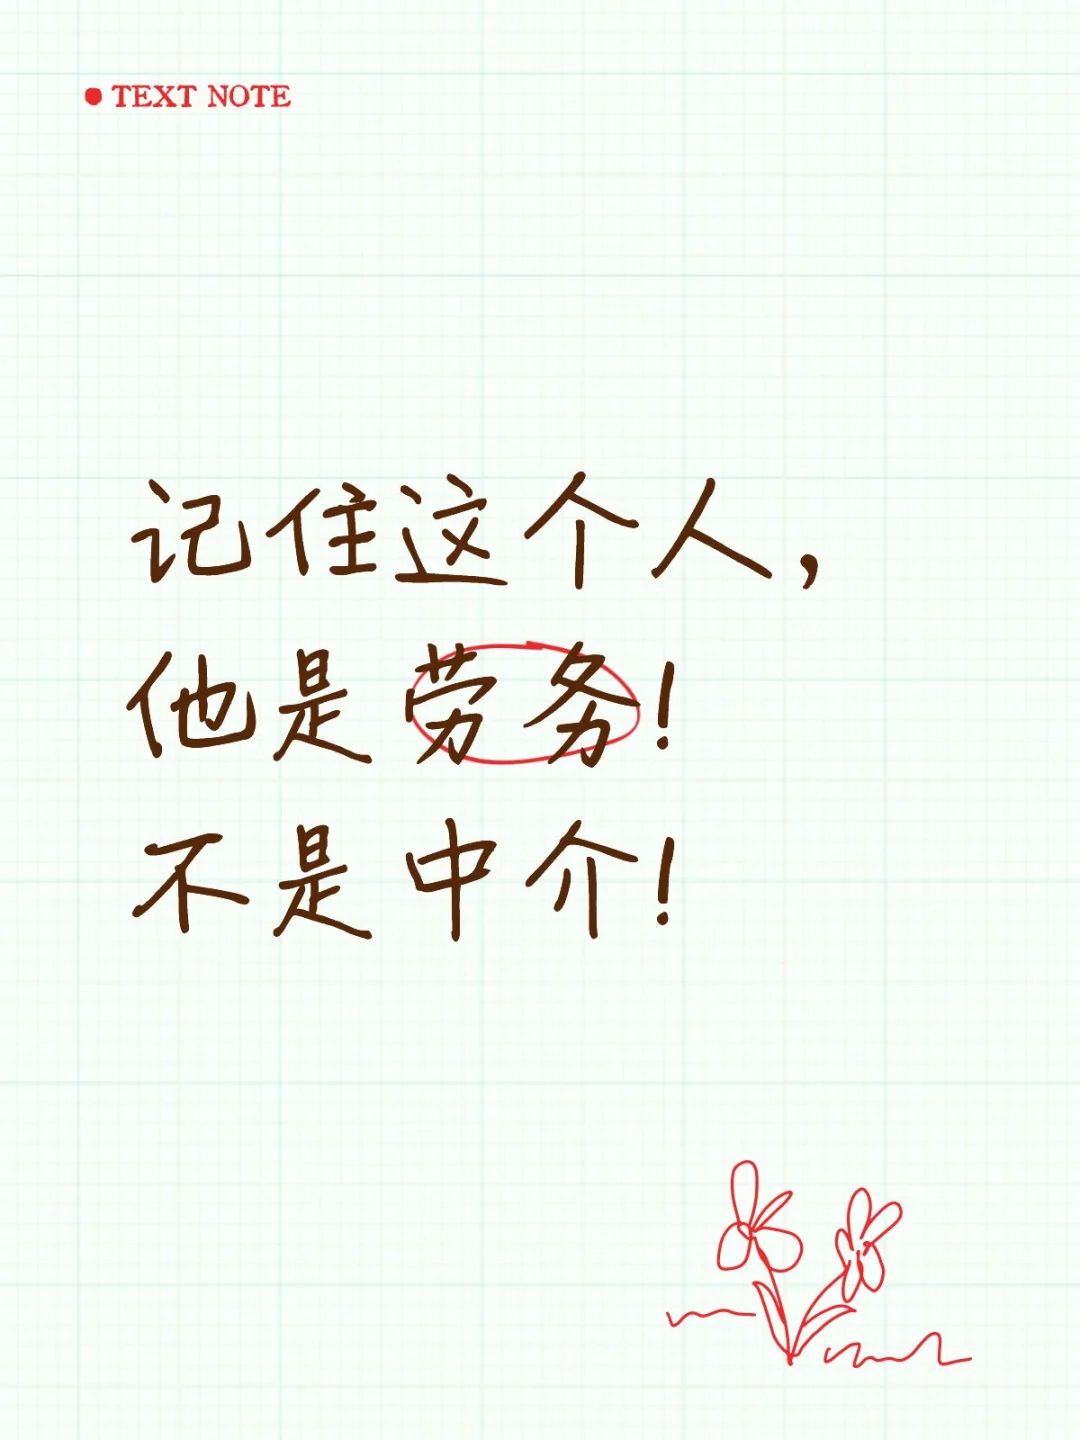 TEXT NOTE
记住这个人，
他是劳务！
不是中介！